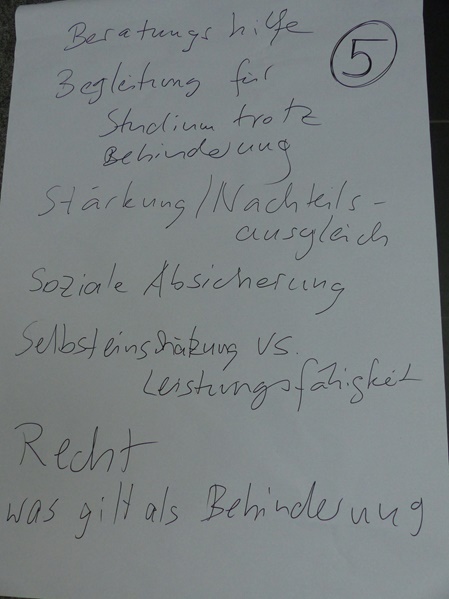 Beratungshilfe
5
Begleitung für
Studium trotz
Behinderung
Stärkung/Nachteils-
ausgleich
Soziale Absicherung
Selbsteinschätzung vs.
Leistungsfähigkeit
Recht
was gilt als Behinderung